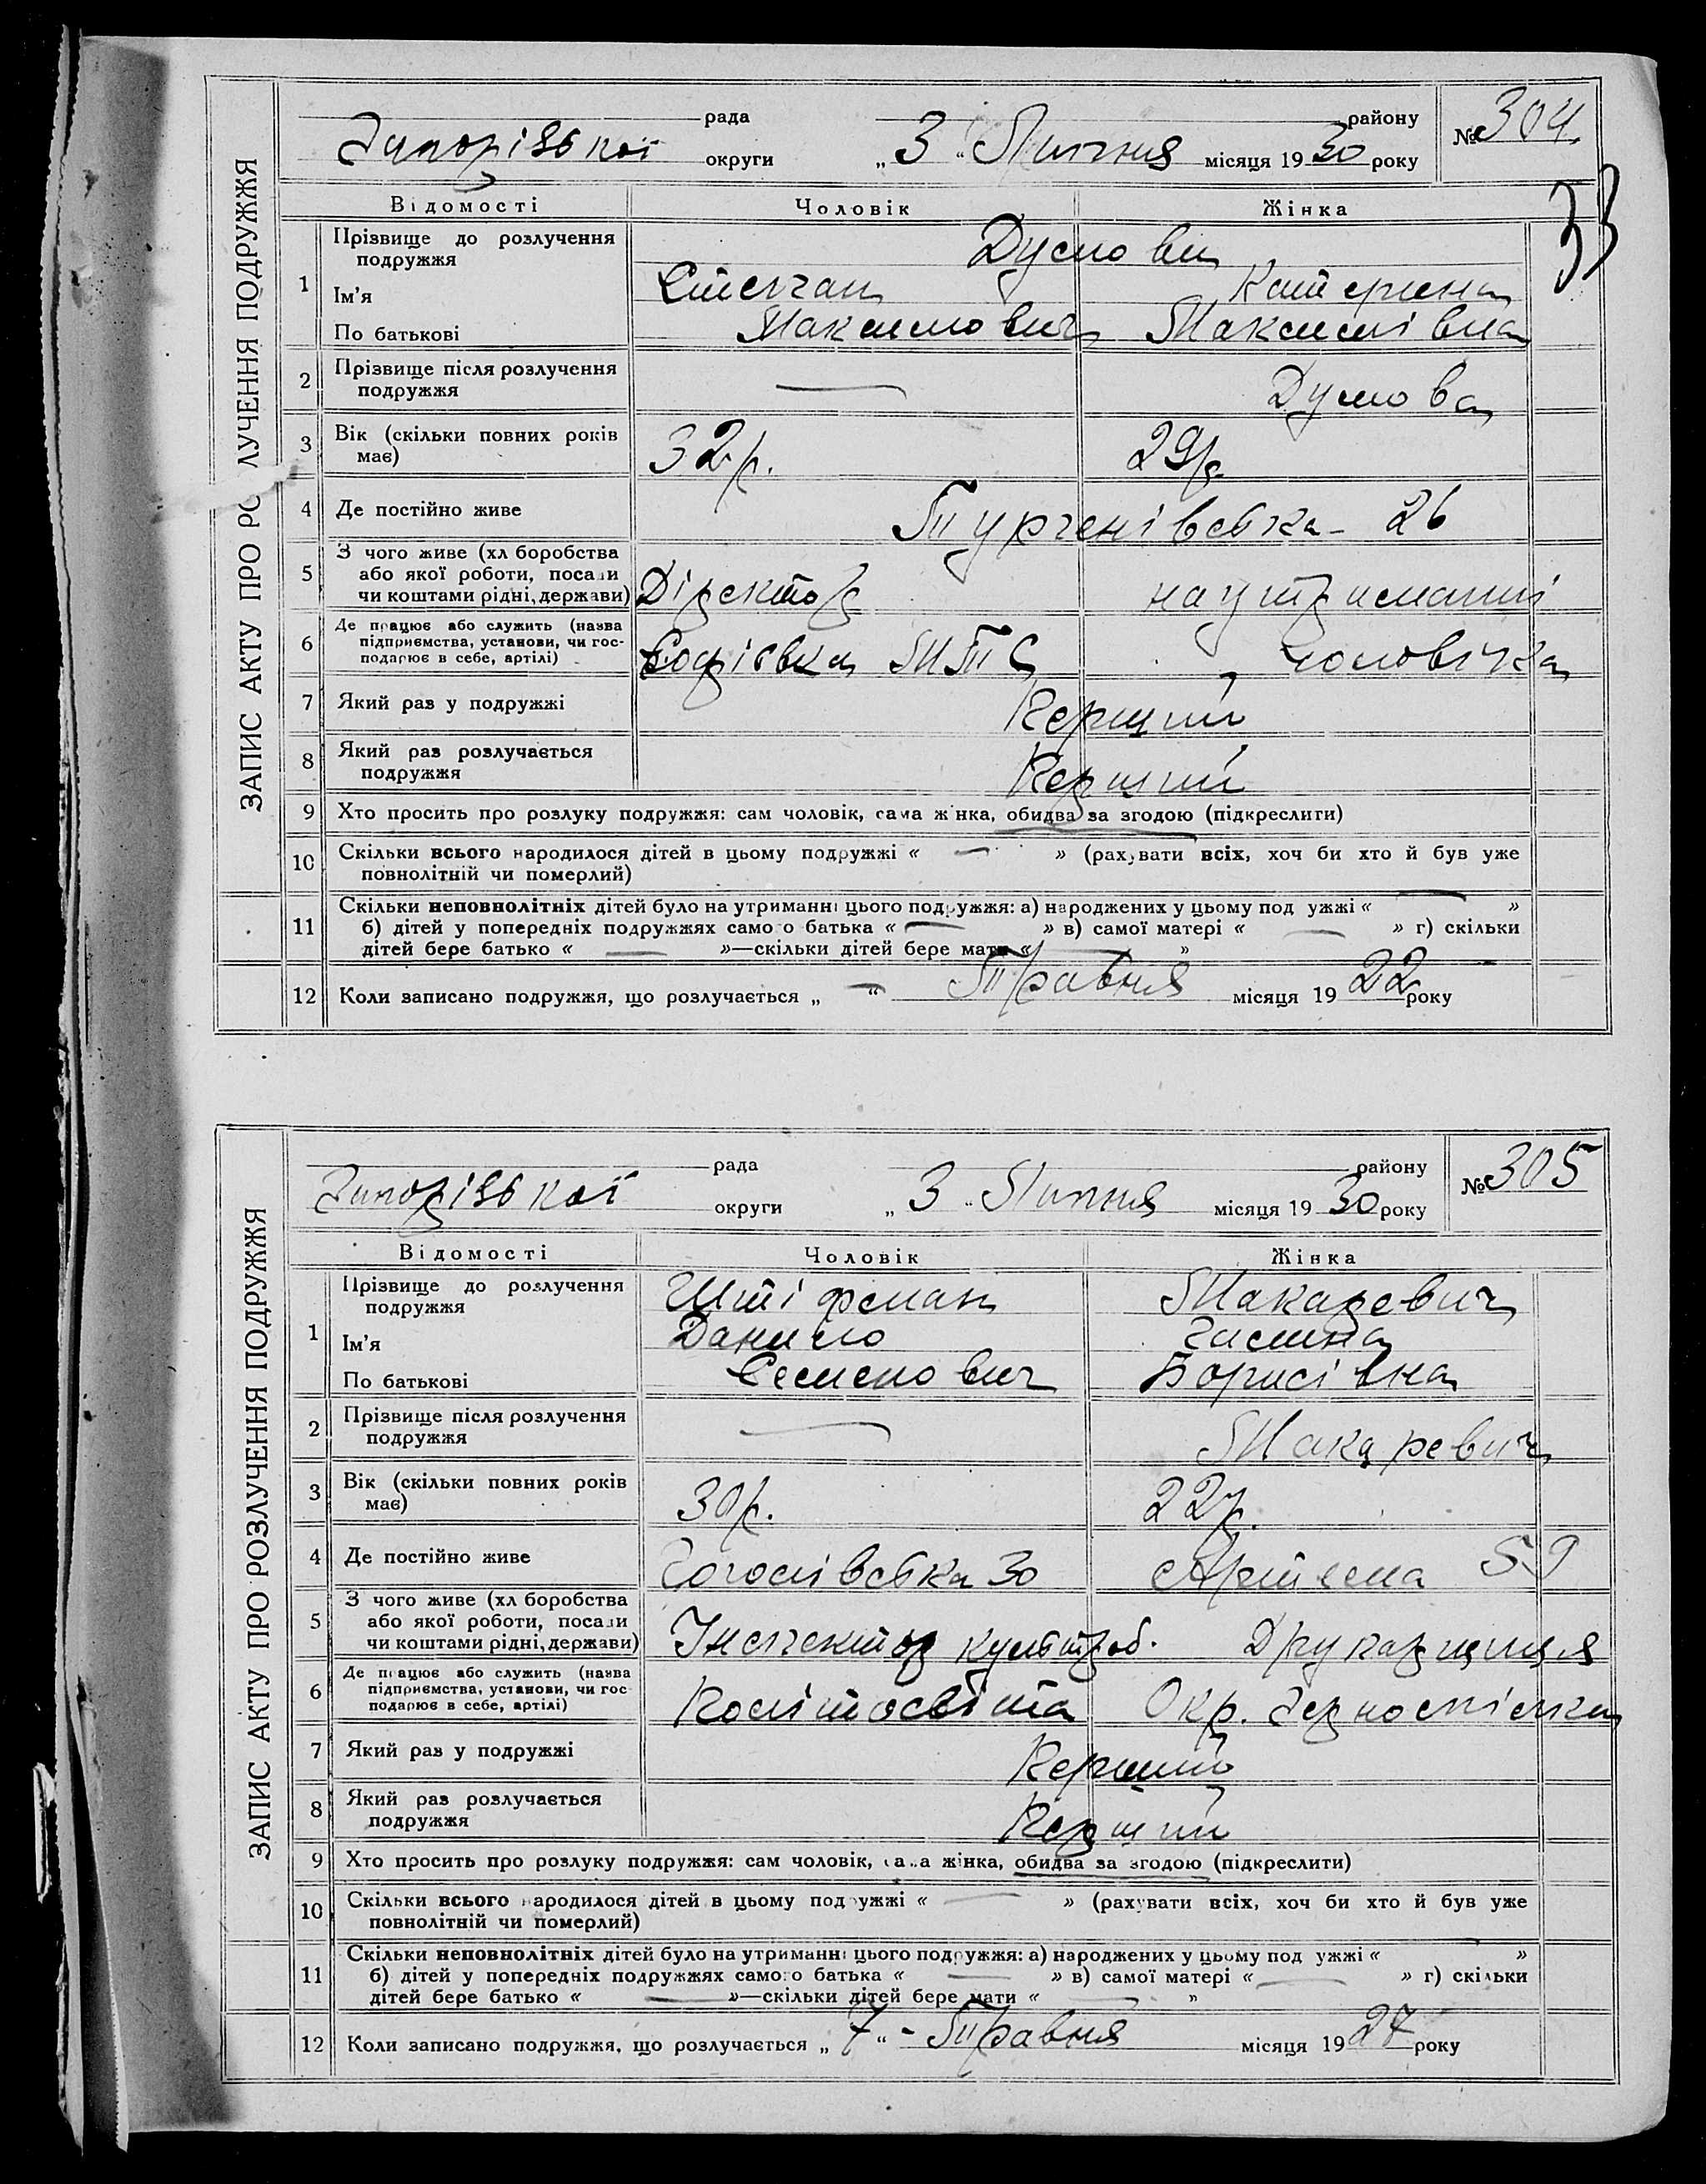 ЗАПИС АКТУ ПРО РОЗЛУЧЕННЯ ПОДРУЖЖЯ
рада району
№ 304
Запорізької округи „ 3 “ Липня місяця 1930 року
33
Відомості Чоловік Жінка
1 Прізвище до розлучення подружжя
Ім'я Катерина
По батькові Максимович Максимівна
2 Прізвище після розлучення подружжя —
3 Вік (скільки повних років має) 32 р. 29 р.
4 Де постійно живе Тургенівська - 26
5 З чого живе (хліборобства або якої роботи, посади чи коштами рідні, держави) Діректор на утриманні
6 Де працює або служить (назва підприємства, установи, чи господарює в себе, артілі) Софіївка МТС чоловічка
7 Який раз у подружжі Перший
8 Який раз розлучається подружжя Перший
9 Хто просить про розлуку подружжя: сам чоловік, сама жінка, обидва за згодою (підкреслити)
10 Скільки всього народилося дітей в цьому подружжі « — » (рахувати всіх, хоч би хто й був уже
повнолітній чи померлий)
11 Скільки неповнолітніх дітей було на утриманні цього подружжя: а) народжених у цьому подружжі « — »
б) дітей у попередніх подружжях самого батька « — » в) самої матері « — » г) скільки
дітей бере батько « — »—скільки дітей бере мати « — »
12 Коли записано подружжя, що розлучається „ — “ Травня місяця 1922 року
ЗАПИС АКТУ ПРО РОЗЛУЧЕННЯ ПОДРУЖЖЯ
рада району
№ 305
Запорізької округи „ 3 “ Липня місяця 1930 року
Відомості Чоловік Жінка
1 Прізвище до розлучення подружжя Штіфман Макаревич
Ім'я Данило Галина
По батькові Семенович Борисівна
2 Прізвище після розлучення подружжя — Макаревич
3 Вік (скільки повних років має) 30 р. 22 р.
4 Де постійно живе Гоголівська 30 Артема 59
5 З чого живе (хліборобства або якої роботи, посади чи коштами рідні, держави) Інспектор культроб. Друкарщиця
6 Де працює або служить (назва підприємства, установи, чи господарює в себе, артілі) Політосвіта Окр. Зерноспілка
7 Який раз у подружжі Перший
8 Який раз розлучається подружжя Перший
9 Хто просить про розлуку подружжя: сам чоловік, сама жінка, обидва за згодою (підкреслити)
10 Скільки всього народилося дітей в цьому подружжі « — » (рахувати всіх, хоч би хто й був уже
повнолітній чи померлий)
11 Скільки неповнолітніх дітей було на утриманні цього подружжя: а) народжених у цьому подружжі « »
б) дітей у попередніх подружжях самого батька « — » в) самої матері « — » г) скільки
дітей бере батько « — »—скільки дітей бере мати « — »
12 Коли записано подружжя, що розлучається „ 7 “ - Травня місяця 1927 року